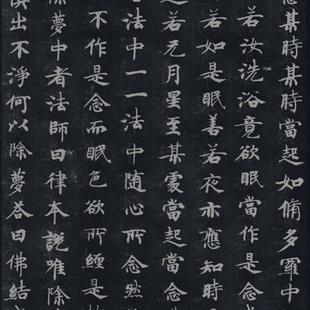 某時某時當起如脩多羅中
若汝洗浴竟欲眠當作是念
若如是眠善若夜亦應知時
若无月星至某處當起當念
法中一一法中随心所念然
不作是念而眠色欲所纏是
除夢中者法師曰律本說唯除
出不淨何以除夢答曰佛結